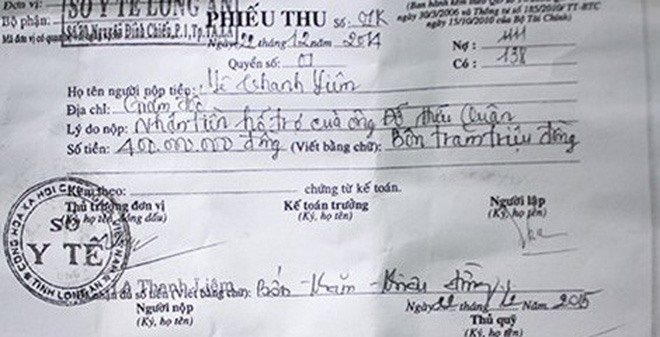 Đơn vị:
SỞ Y TẾ LONG AN
Số 70 Nguyễn Đình Chiểu, P.1, Tp.TA, LA
Mã đơn vị có quan
PHIẾU THU Số: 01K
Ngày 22 tháng 12 năm 2014
Quyển số: 01
(Ban hành kèm theo
185/2010/ TT-BTC
ngày 30/3/2006 và Thông tư
ngày 15/10/2010 của Bộ Tài Chính)
Nợ: 111
Có: 138
Họ tên người nộp tiền: Lê Thanh Liêm
Địa chỉ: Giám đốc
Lý do nộp: Nhận tiền hỗ trợ của ông Đỗ Hữu Quân
Số tiền: 400.000.000 đồng (Viết bằng chữ): Bốn trăm triệu đồng
Kèm theo: chứng từ kế toán.
Thủ trưởng đơn vị
(Ký, họ tên, đóng dấu)
Kế toán trưởng
(Ký, họ tên)
Người lập
(Ký, họ tên)
CỘNG HÒA XÃ HỘI CHỦ NGHĨA VIỆT NAM
SỞ
Y TẾ
TỈNH LONG AN
Lê Thanh Liêm
nhận đủ số tiền (Viết bằng chữ): Bốn trăm triệu đồng
Người nộp
(Ký, họ tên)
Ngày 22 tháng Năm 2015
Thủ quỹ
(Ký, họ tên)